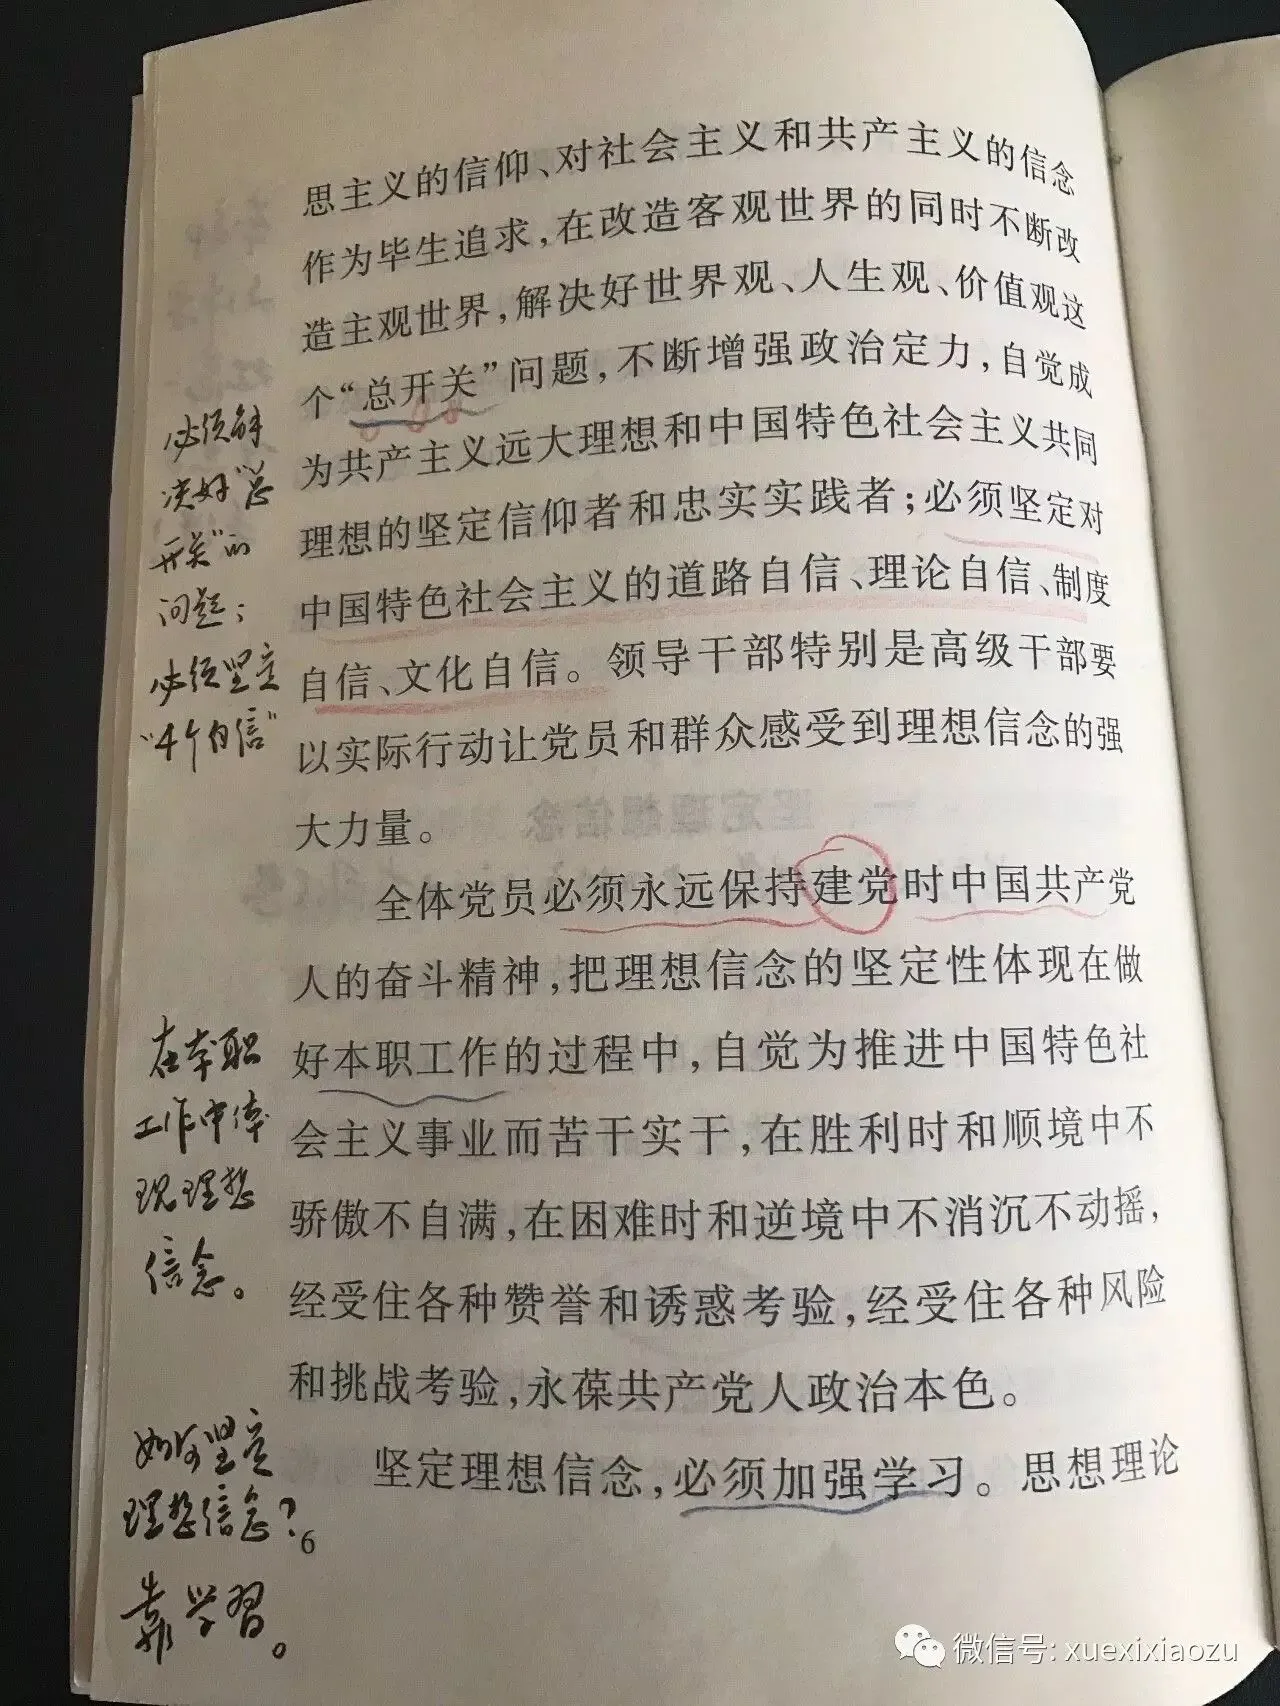 思主义的信仰、对社会主义和共产主义的信念
作为毕生追求，在改造客观世界的同时不断改
造主观世界，解决好世界观、人生观、价值观这
个“总开关”问题，不断增强政治定力，自觉成
为共产主义远大理想和中国特色社会主义共同
理想的坚定信仰者和忠实实践者；必须坚定对
中国特色社会主义的道路自信、理论自信、制度
自信、文化自信。领导干部特别是高级干部要
以实际行动让党员和群众感受到理想信念的强
大力量。
全体党员必须永远保持建党时中国共产党
人的奋斗精神，把理想信念的坚定性体现在做
好本职工作的过程中，自觉为推进中国特色社
会主义事业而苦干实干，在胜利时和顺境中不
骄傲不自满，在困难时和逆境中不消沉不动摇，
经受住各种赞誉和诱惑考验，经受住各种风险
和挑战考验，永葆共产党人政治本色。
坚定理想信念，必须加强学习。思想理论
必须解
决好“总
开关”的
问题；
必须坚定
“4个自信”
在本职
工作中体
现理想
信念。
如何坚定
理想信念？
靠学习。
6
微信号: xuexixiaozu